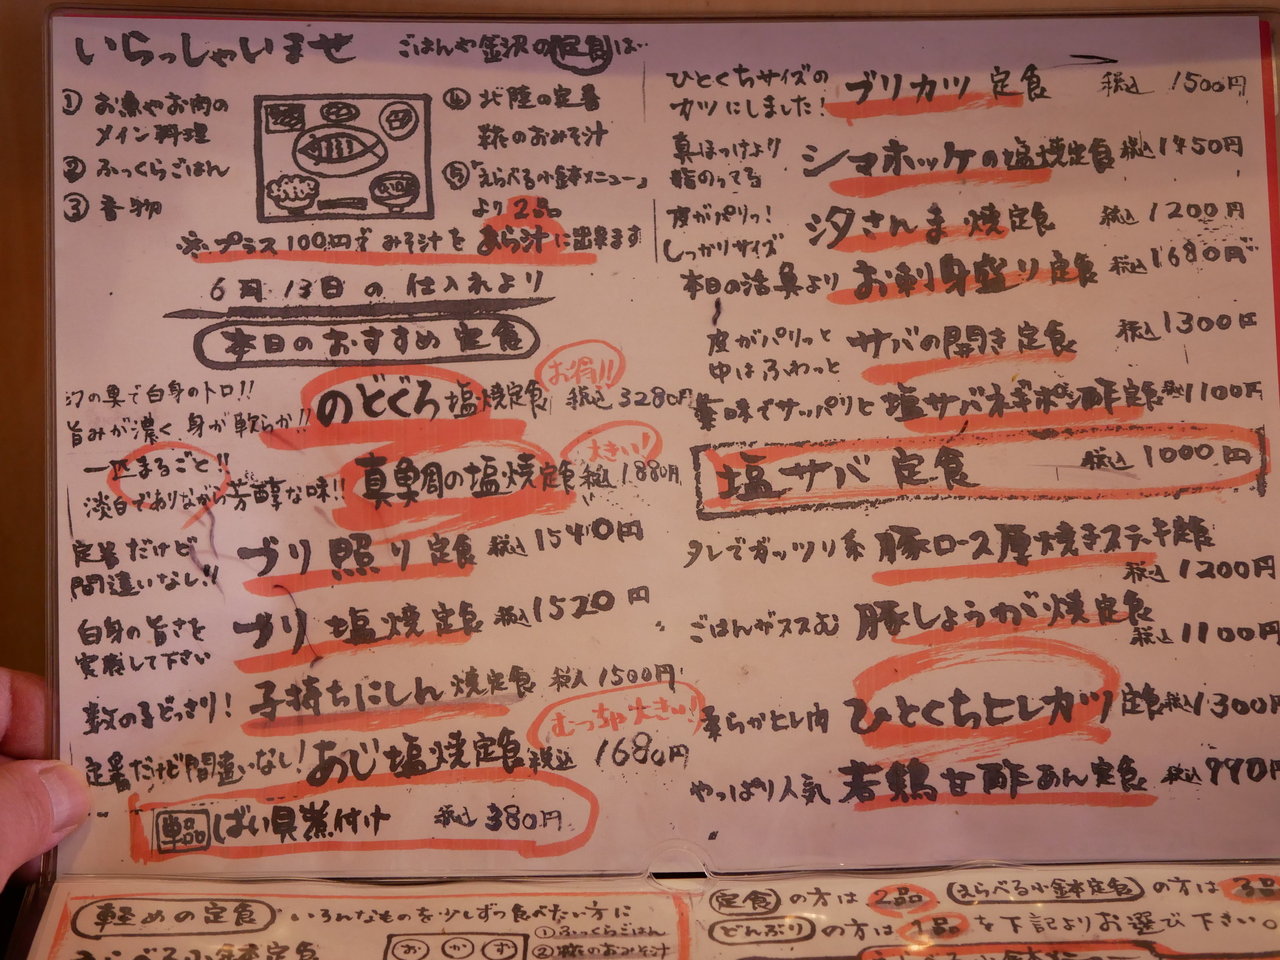 いらっしゃいませ ごはんや金沢の定食は…
① お魚やお肉の
メイン料理
② ふっくらごはん
③ 香物
④ 北陸の定番
糀のおみそ汁
⑤「えらべる小鉢メニュー」
より2品
※プラス100円でみそ汁をあら汁に出来ます
6月13日の仕入れより
本日のおすすめ定食
汐の奥で白身のトロ!!
旨みが濃く身が軟らか!!
のどぐろ塩焼定食 税込3280円
お得!!
一匹まるごと!!
淡白でありながら芳醇な味!!
真鯛の塩焼定食 税込1880円
大きい!
定番だけど
間違いなし!!
ブリ照り定食 税込1540円
白身の旨さを
実感して下さい
ブリ塩焼定食 税込1520円
数の子どっさり!
子持ちにしん焼定食 税込1500円
むっちゃ大きい!
定番だけど間違いなし!
あじ塩焼定食 税込1680円
単品 ばい貝煮付け 税込380円
ひとくちサイズの
カツにしました!
ブリカツ定食 税込1500円
真ほっけより
脂のってる
シマホッケの塩焼定食 税込1450円
皮がパリッ!
しっかりサイズ
汐さんま焼定食 税込1200円
本日の活魚より お刺身盛り定食 税込1680円
皮がパリッと
中はふわっと
サバの開き定食 税込1300円
薬味でサッパリと 塩サバネギポン酢定食 税込1100円
塩サバ定食 税込1000円
タレでガッツリ系 豚ロース厚焼きステーキ定食
税込1200円
ごはんがススむ 豚しょうが焼定食
税込1100円
柔らかヒレ肉 ひとくちヒレカツ定食 税込1300円
やっぱり人気 若鶏甘酢あん定食 税込990円
軽めの定食 いろんなものを少しずつ食べたい方に
えらべる小鉢定食
おかず
①ふっくらごはん
②糀のおみそ汁
定食の方は2品 えらべる小鉢定食の方は3品
どんぶりの方は1品を下記よりお選び下さい。